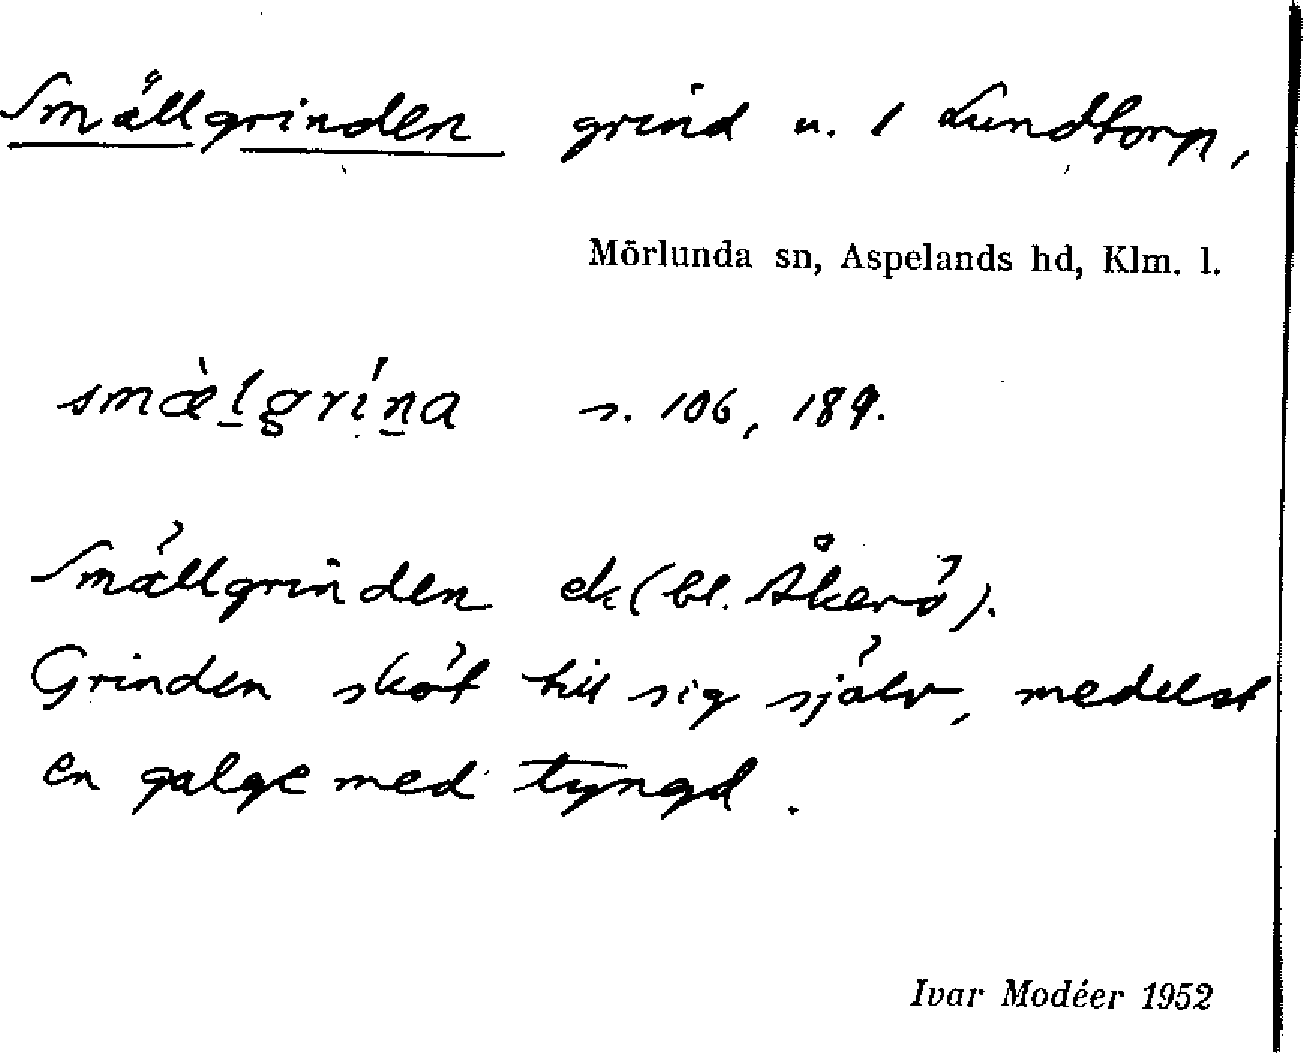 Smällgrinden grind u. 1 Lundtorp,
Mörlunda sn, Aspelands hd, Klm. l.
smæ̀l̠gri´n̠a s. 106, 189.
Smällgrinden ek (bl. Åkerö).
Grinden sköt till sig själv, medelst
en galge med tyngd.
Ivar Modéer 1952